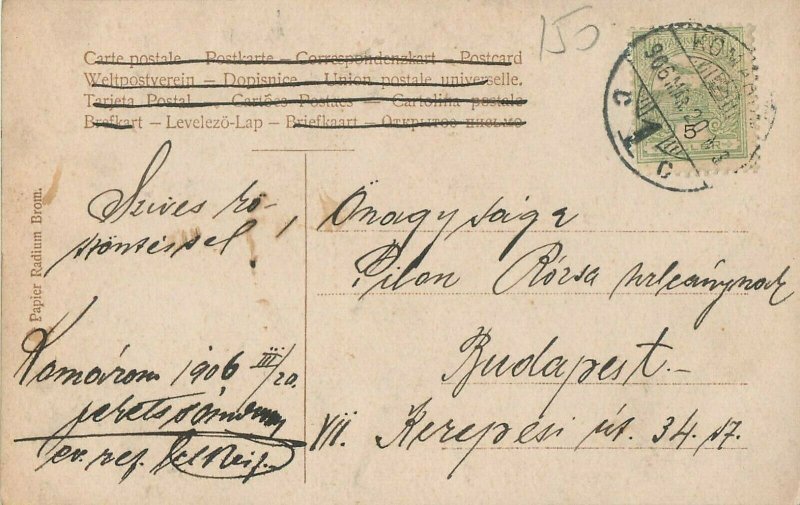 150
Carte postale – Postkarte – Correspondenzkart – Postcard
Weltpostverein – Dopisnice – Union postale universelle.
Tarjeta Postal – Cartões Postaes – Cartolina postale
Brefkart – Levelező-Lap – Briefkaart – Открытое письмо
KOMÁROM
906 MÁR. 20
C 1 C
5
Papier Radium Brom.
Szives kö-
szöntéssel!
Komárom 1906 III/20.
ev. ref.
Őnagysága
Pilon Rózsa urleánynak
Budapest
VII. Kerepesi út. 34. 17.